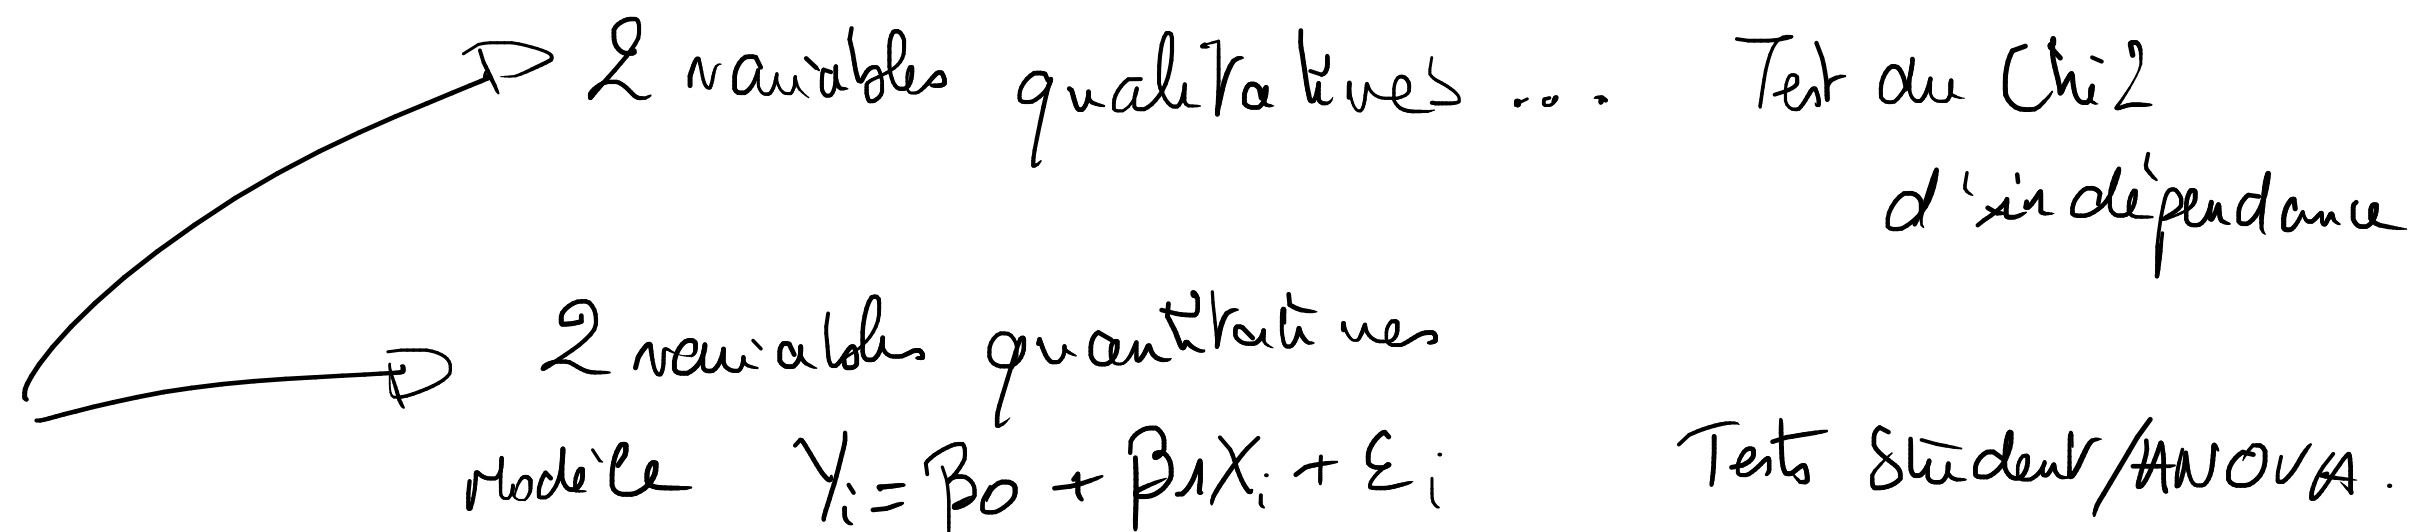 2 variables qualitatives ... Test du Chi2
d'indépendance
2 variables quantitatives
Modèle Yi = β0 + β1Xi + εi Tests Student/ANOVA.